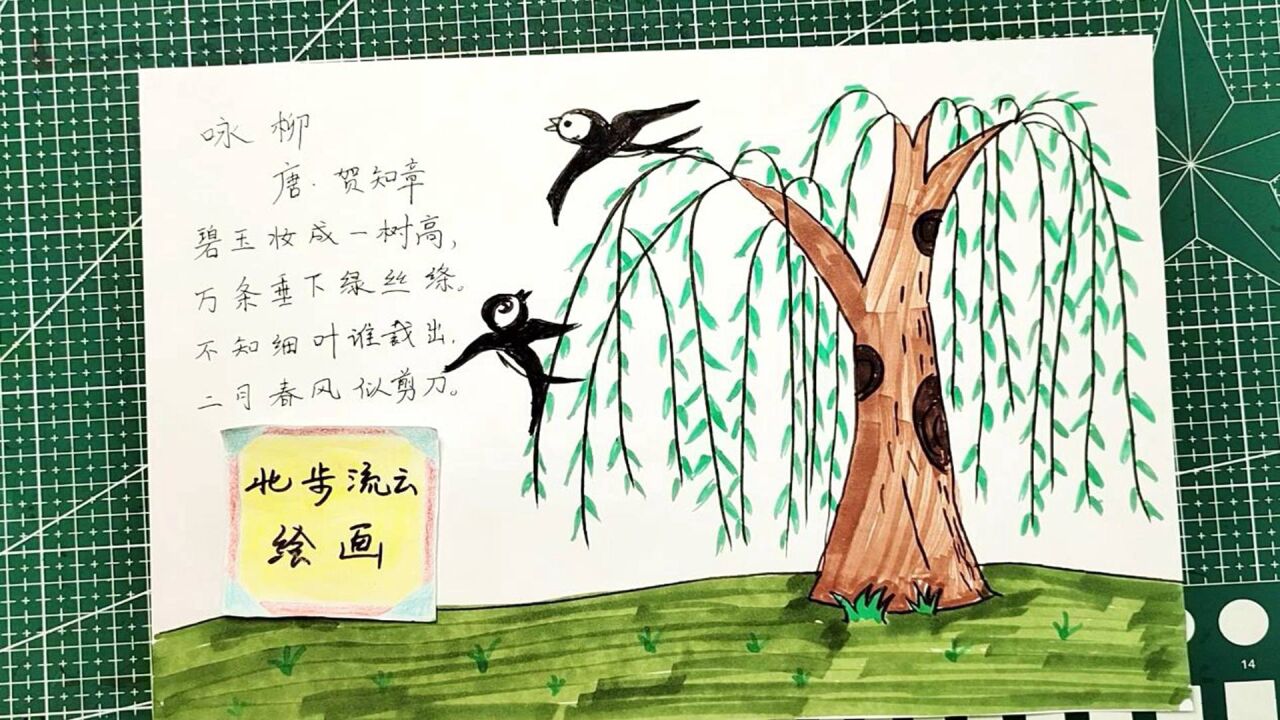 咏柳
唐·贺知章
碧玉妆成一树高，
万条垂下绿丝绦。
不知细叶谁裁出，
二月春风似剪刀。
北步流云
绘画
14